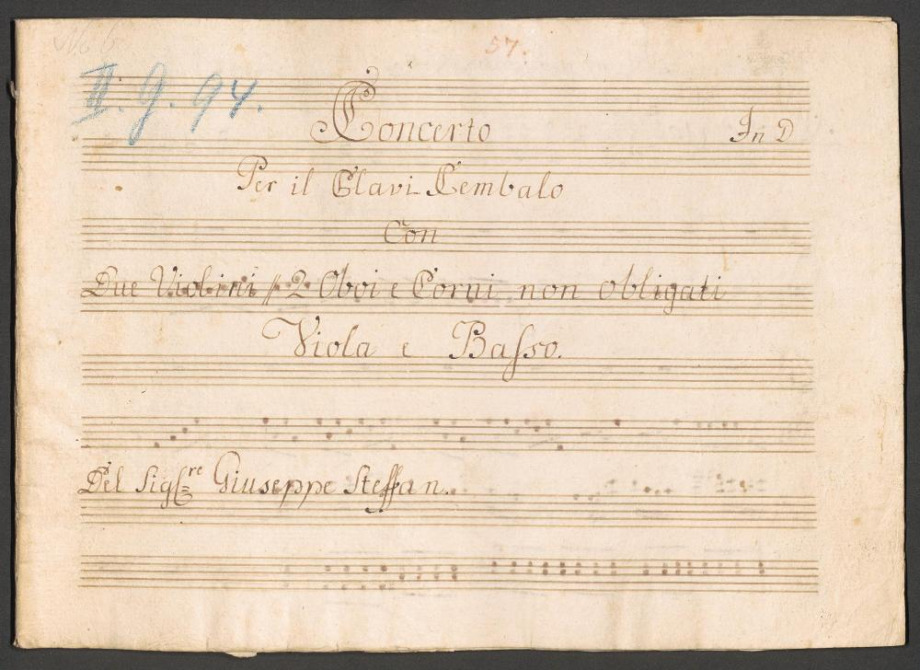 57.
II. g. 94.
Concerto In D
Per il Clavi-Cembalo
Con
Due Violini // 2 Oboi e Corni non obligati
Viola e Baſso.
Del Sig:re Giuseppe Steffan.